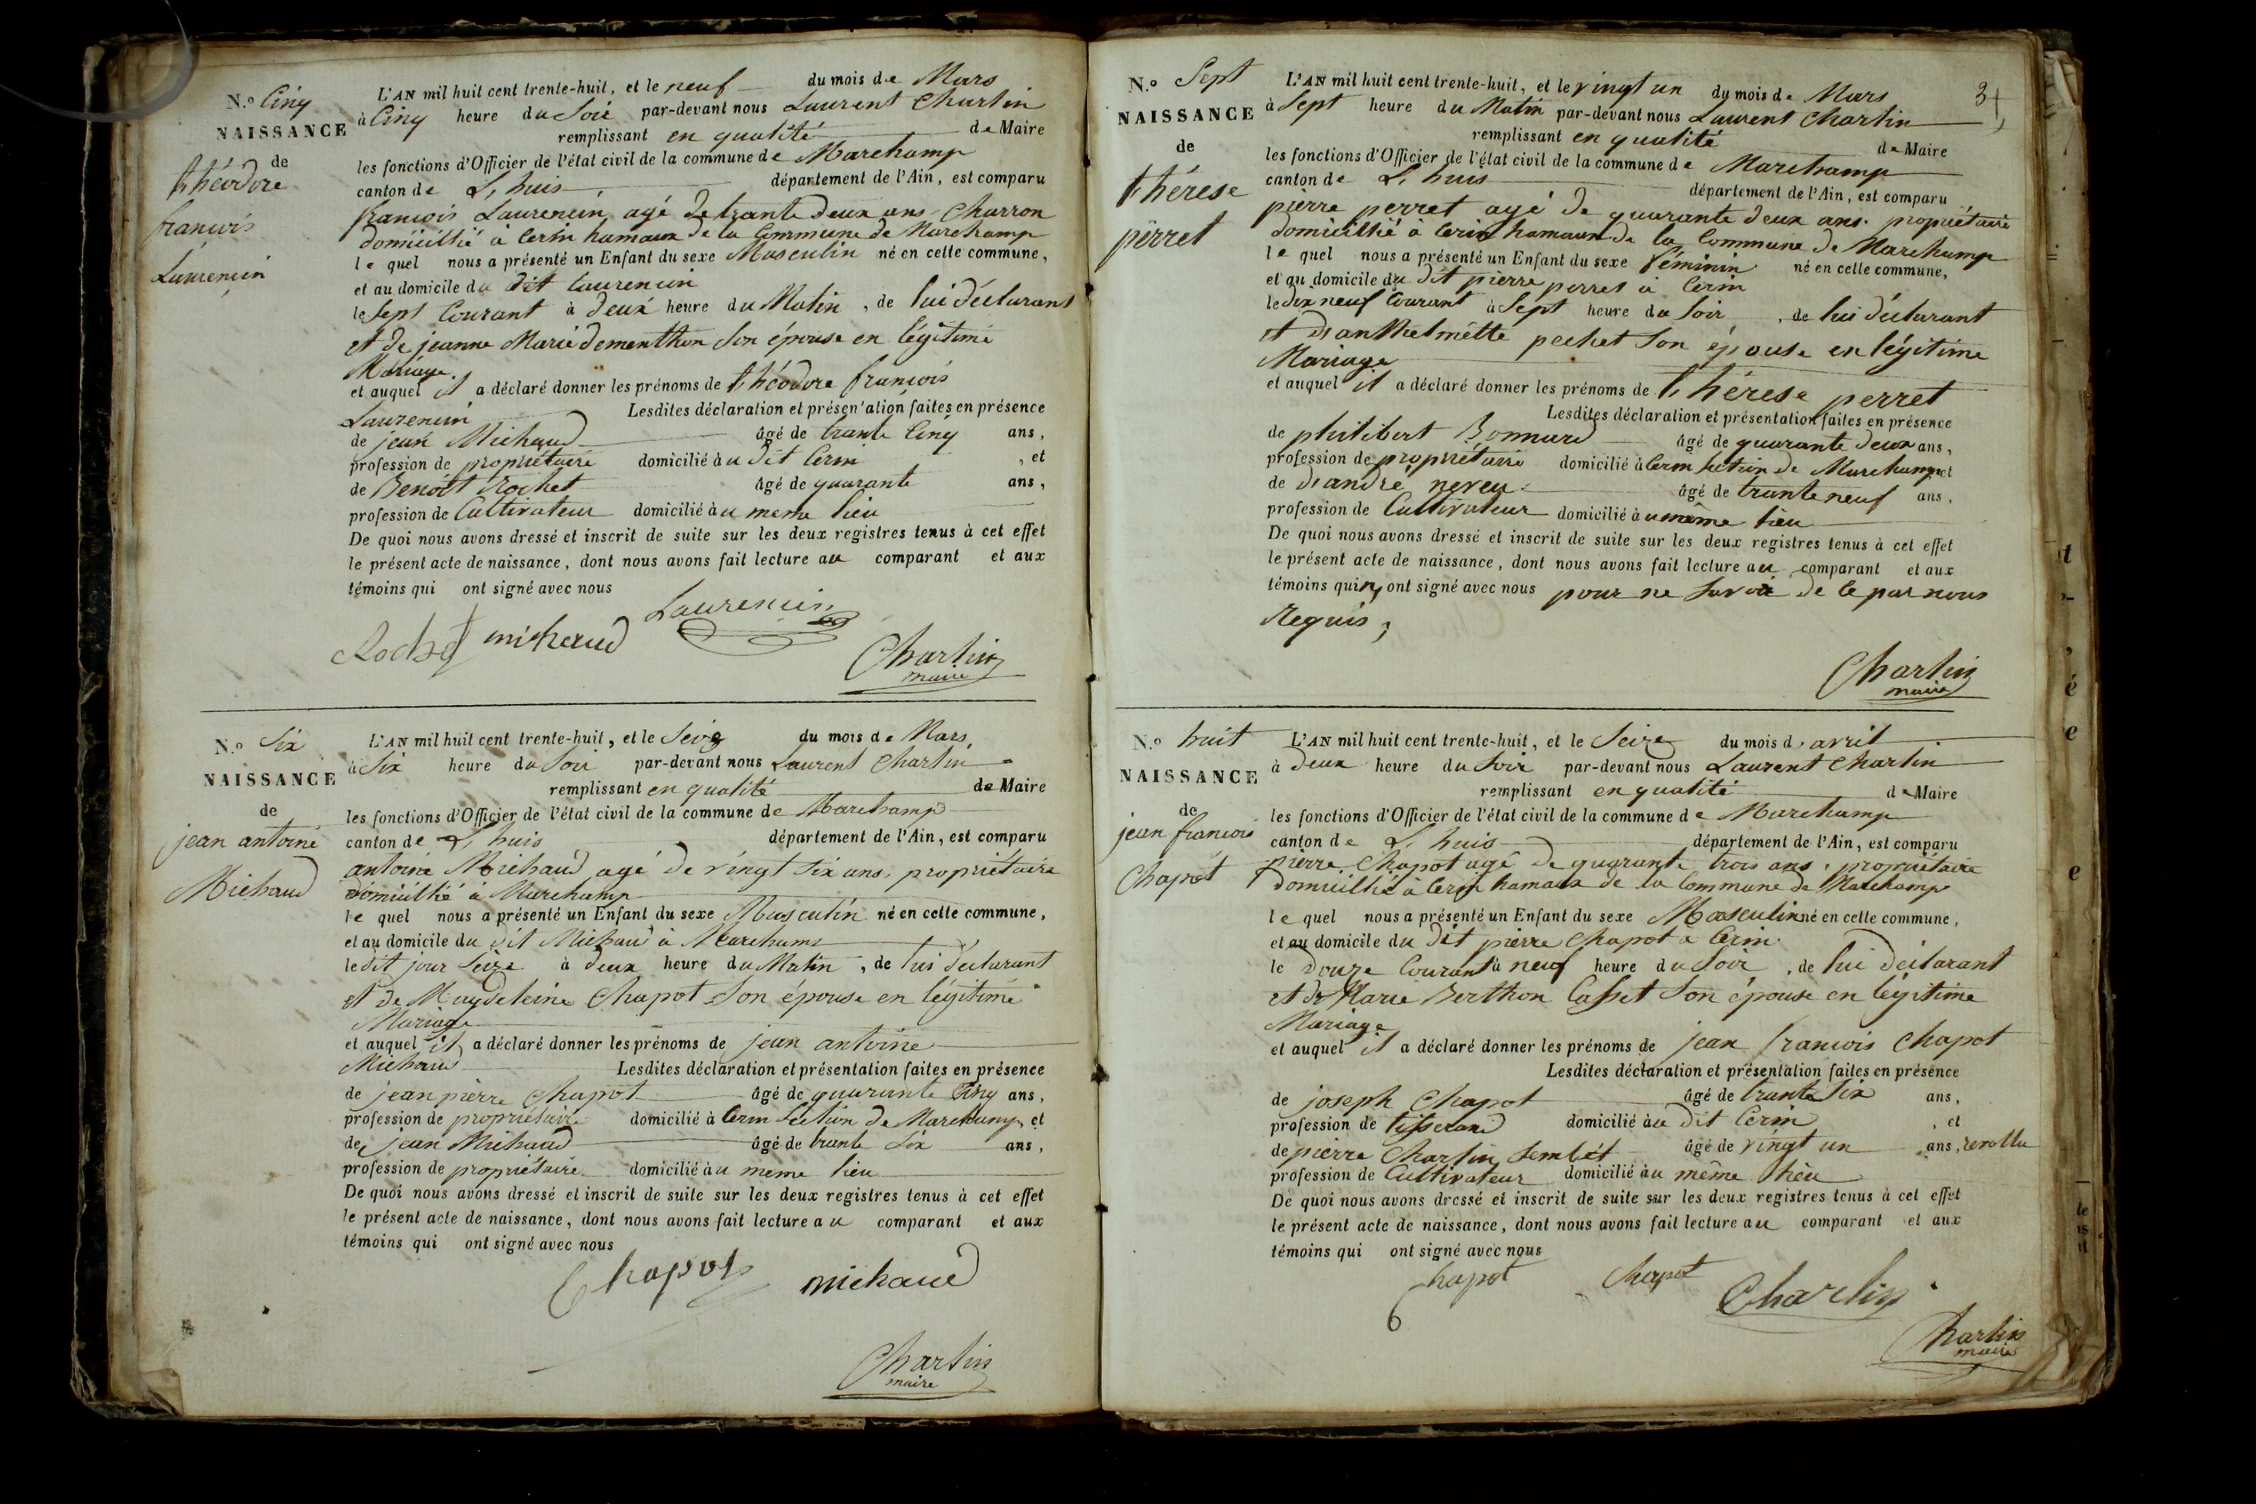 N.o Cinq
NAISSANCE
de
théodore
francois
Laurencin
L'AN mil huit cent trente-huit, et le neuf du mois de Mars
à Cinq heure du Soir par-devant nous Laurent Charlin
remplissant en qualité de Maire
les fonctions d'Officier de l'état civil de la commune de Marchamp
canton de L, huis département de l'Ain, est comparu
francois Laurencin, agé de trante deux ans Charron
domicillié à Cerin hamaux de la Commune de Marchamp
le quel nous a présenté un Enfant du sexe Masculin né en cette commune,
et au domicile du dit Laurencin
le Sept Courant à deux heure du Matin, de lui déclarant
et de jeanne Marie dementhon Son épouse en légitime
Mariage
et auquel il a déclaré donner les prénoms de théodore francois
Laurencin Lesdites déclaration et présentation faites en présence
de jean Michaud âgé de trante Cinq ans,
profession de propriétaire domicilié au dit Cerin, et
de Benoit Rochet âgé de quarante ans,
profession de Cultivateur domicilié au meme lieu
De quoi nous avons dressé et inscrit de suite sur les deux registres tenus à cet effet
le présent acte de naissance, dont nous avons fait lecture au comparant et aux
témoins qui ont signé avec nous
Laurencin
Rochet michaud
Charlin
maire
N.o Six
NAISSANCE
de
jean antoine
Michaud
L'AN mil huit cent trente-huit, et le Seize du mois de Mars
à Six heure du Soir par-devant nous Laurent Charlin
remplissant en qualité de Maire
les fonctions d'Officier de l'état civil de la commune de Marchamp
canton de L, huis département de l'Ain, est comparu
antoine Michaud agé de vingt Six ans, propriétaire
domicillié à Marchamp
le quel nous a présenté un Enfant du sexe Masculin né en cette commune,
et au domicile du dit Michaud à Marchamp
le dit jour Seize à deux heure du Matin, de lui déclarant
et de Magdeleine Chapot Son épouse en légitime
Mariage
et auquel il a déclaré donner les prénoms de jean antoine
Michaud Lesdites déclaration et présentation faites en présence
de jean pierre Chapot âgé de quarante Cinq ans,
profession de propriétaire domicilié à Cerin Section de Marchamp et
de jean Michaud âgé de trante Six ans,
profession de propriétaire domicilié au meme lieu
De quoi nous avons dressé et inscrit de suite sur les deux registres tenus à cet effet
le présent acte de naissance, dont nous avons fait lecture au comparant et aux
témoins qui ont signé avec nous
Chapot michaud
Charlin
maire
N.o Sept
NAISSANCE
de
thérese
perret
3
L'AN mil huit cent trente-huit, et le vingt un du mois de Mars
à Sept heure du Matin par-devant nous Laurent Charlin
remplissant en qualité de Maire
les fonctions d'Officier de l'état civil de la commune de Marchamp
canton de L, huis département de l'Ain, est comparu
pierre perret agé de quarante deux ans. propriétaire
domicillié à Cerin hamaux de la Commune de Marchamp
le quel nous a présenté un Enfant du sexe féminin né en cette commune,
et au domicile du dit pierre perret à Cerin
le dix neuf Courant à Sept heure du Soir, de lui déclarant
et d'anthelmette pechet Son épouse en légitime
Mariage
et auquel il a déclaré donner les prénoms de thérese perret
Lesdites déclaration et présentation faites en présence
de philibert Bonnard âgé de quarante deux ans,
profession de propriétaire domicilié à Cerin section de Marchamp et
de andré neveu âgé de trante neuf ans,
profession de Cultivateur domicilié au même lieu
De quoi nous avons dressé et inscrit de suite sur les deux registres tenus à cet effet
le présent acte de naissance, dont nous avons fait lecture au comparant et aux
témoins qui n'y ont signé avec nous pour ne Savoir de Ce par nous
Requis,
Charlin
maire
N.o huit
NAISSANCE
de
jean francois
Chapot
L'AN mil huit cent trente-huit, et le Seize du mois d'avril
à deux heure du Soir par-devant nous Laurent Charlin
remplissant en qualité de Maire
les fonctions d'Officier de l'état civil de la commune de Marchamp
canton de L, huis département de l'Ain, est comparu
pierre Chapot agé de quarante trois ans, propriétaire
domicillié à Cerin hamaux de la Commune de Marchamp
le quel nous a présenté un Enfant du sexe Masculin né en cette commune,
et au domicile du dit pierre Chapot à Cerin
le douze Courant à neuf heure du Soir, de lui déclarant
et de Marie Berthon Casset Son épouse en légitime
Mariage
et auquel il a déclaré donner les prénoms de jean francois Chapot
Lesdites déclaration et présentation faites en présence
de joseph Chapot âgé de trante Six ans,
profession de tisserand domicilié au dit Cerin, et
de pierre Charlin Sembét âgé de vingt un ans, revollu
profession de Cultivateur domicilié au même lieu
De quoi nous avons dressé et inscrit de suite sur les deux registres tenus à cet effet
le présent acte de naissance, dont nous avons fait lecture au comparant et aux
témoins qui ont signé avec nous
Chapot Chapot Charlin
Charlin
maire